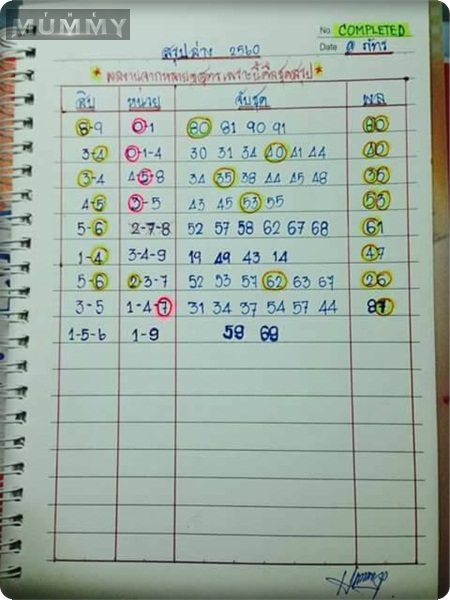 THE
MUMMY
No. COMPLETED
สรุปล่าง 2560
Date @ ภัทร
* ผลงานจากหลายๆสูตรเพราะนี้คือชุดสรุป *
สิบ หน่วย จับชุด ผล
8-9 0-1 80 81 90 91 80
3-4 0-1-4 30 31 34 40 41 44 40
3-4 4-5-8 34 35 38 44 45 48 35
4-5 3-5 43 45 53 55 53
5-6 2-7-8 52 57 58 62 67 68 61
1-4 3-4-9 19 49 43 14 47
5-6 2-3-7 52 53 57 62 63 67 26
3-5 1-4-7 31 34 37 54 57 44 87
1-5-6 1-9 59 69